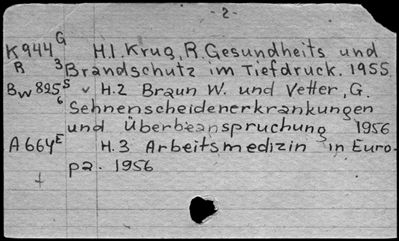 - 2 -
K944 G H.1. Krug, R. Gesundheits und
R 3 Brandschutz im Tiefdruck. 1955
Bw895 S v H.2 Braun W. und Vetter, G.
6 Sehnenscheidenerkrankungen
und Überbeanspruchung 1956
A664 E H.3 Arbeitsmedizin in Euro-
pa. 1956